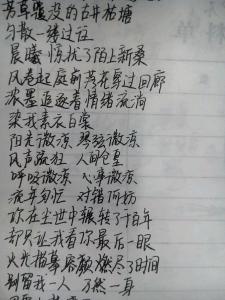 芳草凄没的古井枯塘
匀散一缕过往
晨曦惊扰了陌上新桑
风卷起庭前落花穿过回廊
浓墨追逐着情绪流淌
染我素衣白裳
阳光微凉 琴弦微凉
风声疏狂 人间仓皇
呼吸微凉 心事微凉
流年匆忙 对错何妨
你在尘世中辗转了千百年
却只让我看你最后一眼
火光描摹容颜燃尽了时间
别留我一人 孑然一身